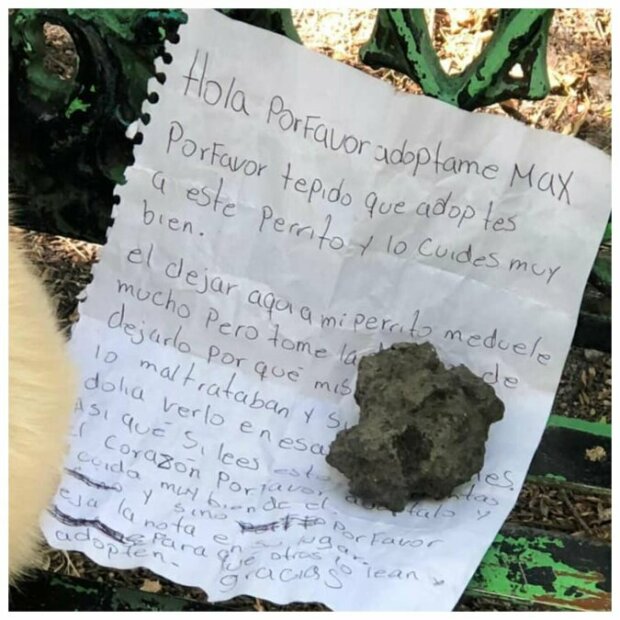 Hola PorFavor adoptame Max
PorFavor tepido que adoptes
a este perrito y lo cuides muy
bien.
el dejar aqui a mi perrito meduele
mucho Pero tome la de
dejarlo Por qué mis
lo maltrataban y
dolia verlo en esa
Asi que si lees esto
el corazon Por favor adoptalo y
cuida muy bien de el
y sino PorFavor
deja la nota en su lugar
Para que otros lo lean y
adopten.
gracias